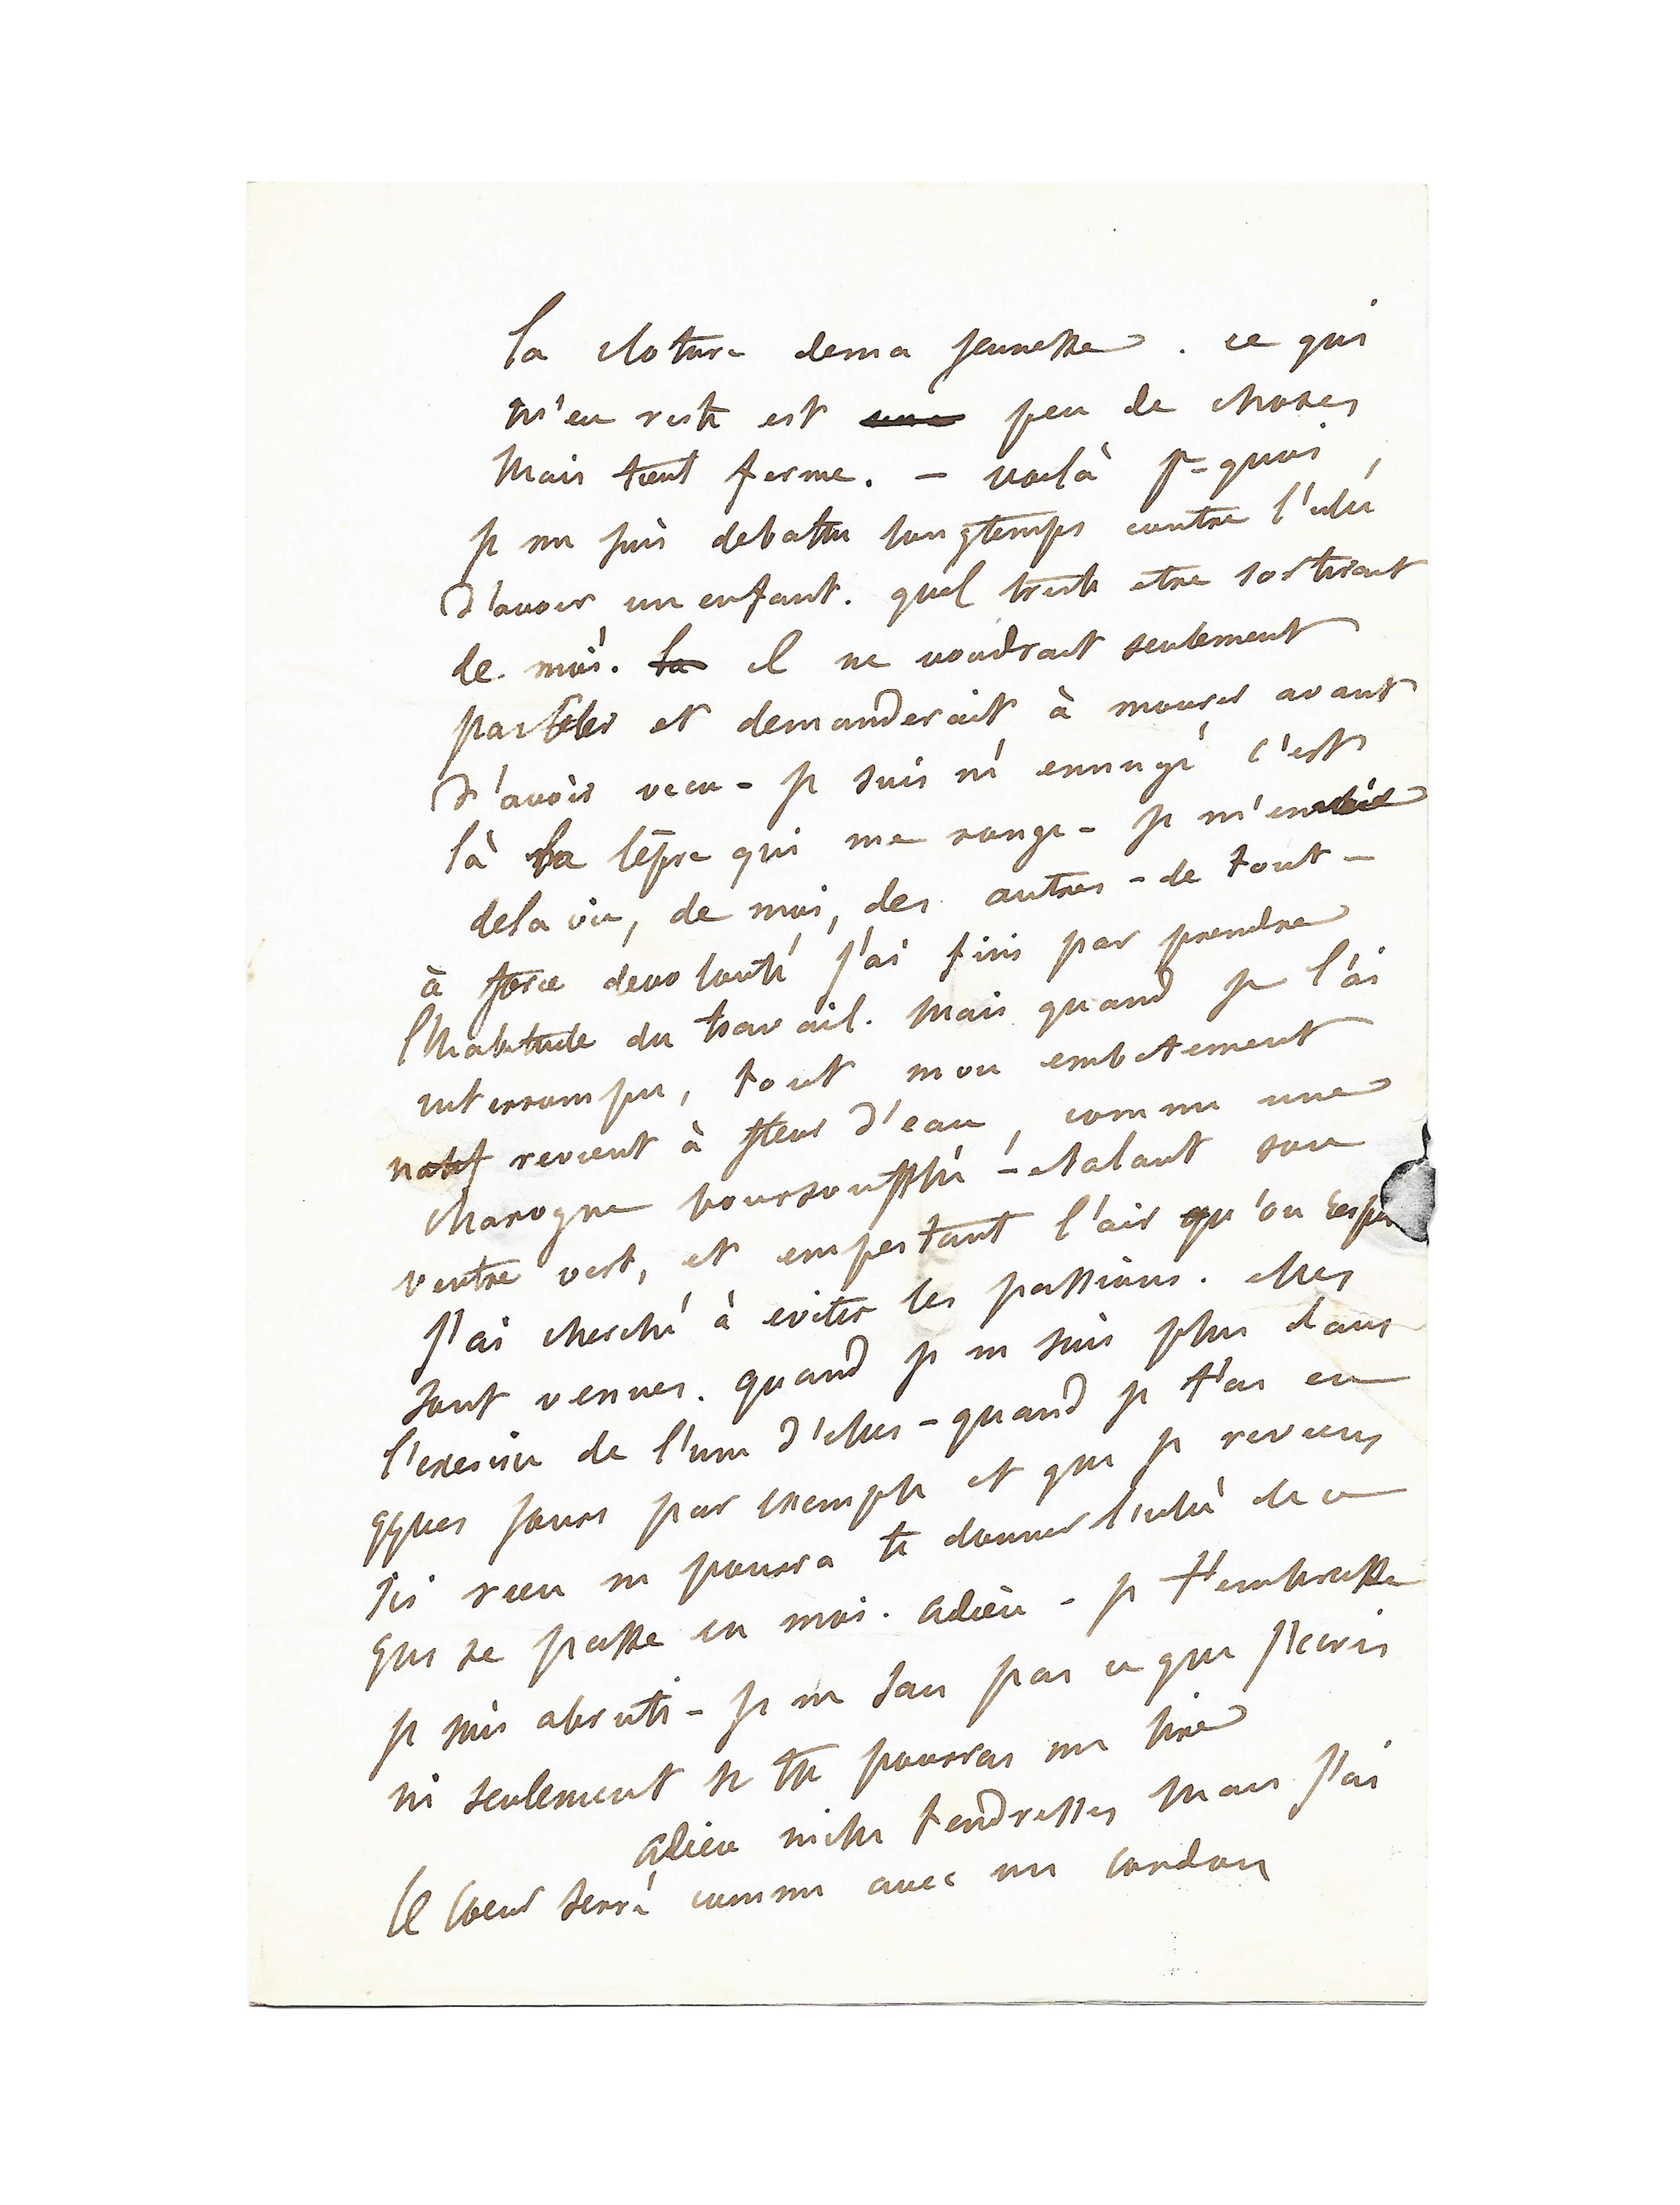 la cloture de ma jeunesse. ce qui
m'en reste est peu de choses
mais tient ferme. – voilà p-quoi
je me suis debattu longtemps contre l'idée
d'avoir un enfant. quel triste etre sortirait
de moi. il ne voudrait seulement
parler et demanderait à mourir avant
d'avoir vecu – je suis né ennuyé c'est
là la lèpre qui me ronge – je m'ennuie
de la vie, de moi, des autres – de tout –
à force de volonté j'ai fini par prendre
l'habitude du travail. mais quand je l'ai
interrompu, tout mon embetement
revient à fleur d'eau, comme une
charogne boursoufflée – etalant son
ventre vert, et empestant l'air qu'on respire
j'ai cherché à eviter les passions. elles
sont venues. quand je ne suis plus dans
l'exercice de l'une d'elles – quand je t'ai eu
qques jours par exemple et que je reviens
ici rien ne pourra te donner l'idée de ce
qui se passe en moi. adieu – je t'embrasse
je suis abruti – je ne sais pas ce que j'ecris
ni seulement si tu pourras me lire
adieu mille tendresses mais j'ai
le coeur serré comme avec un cordon